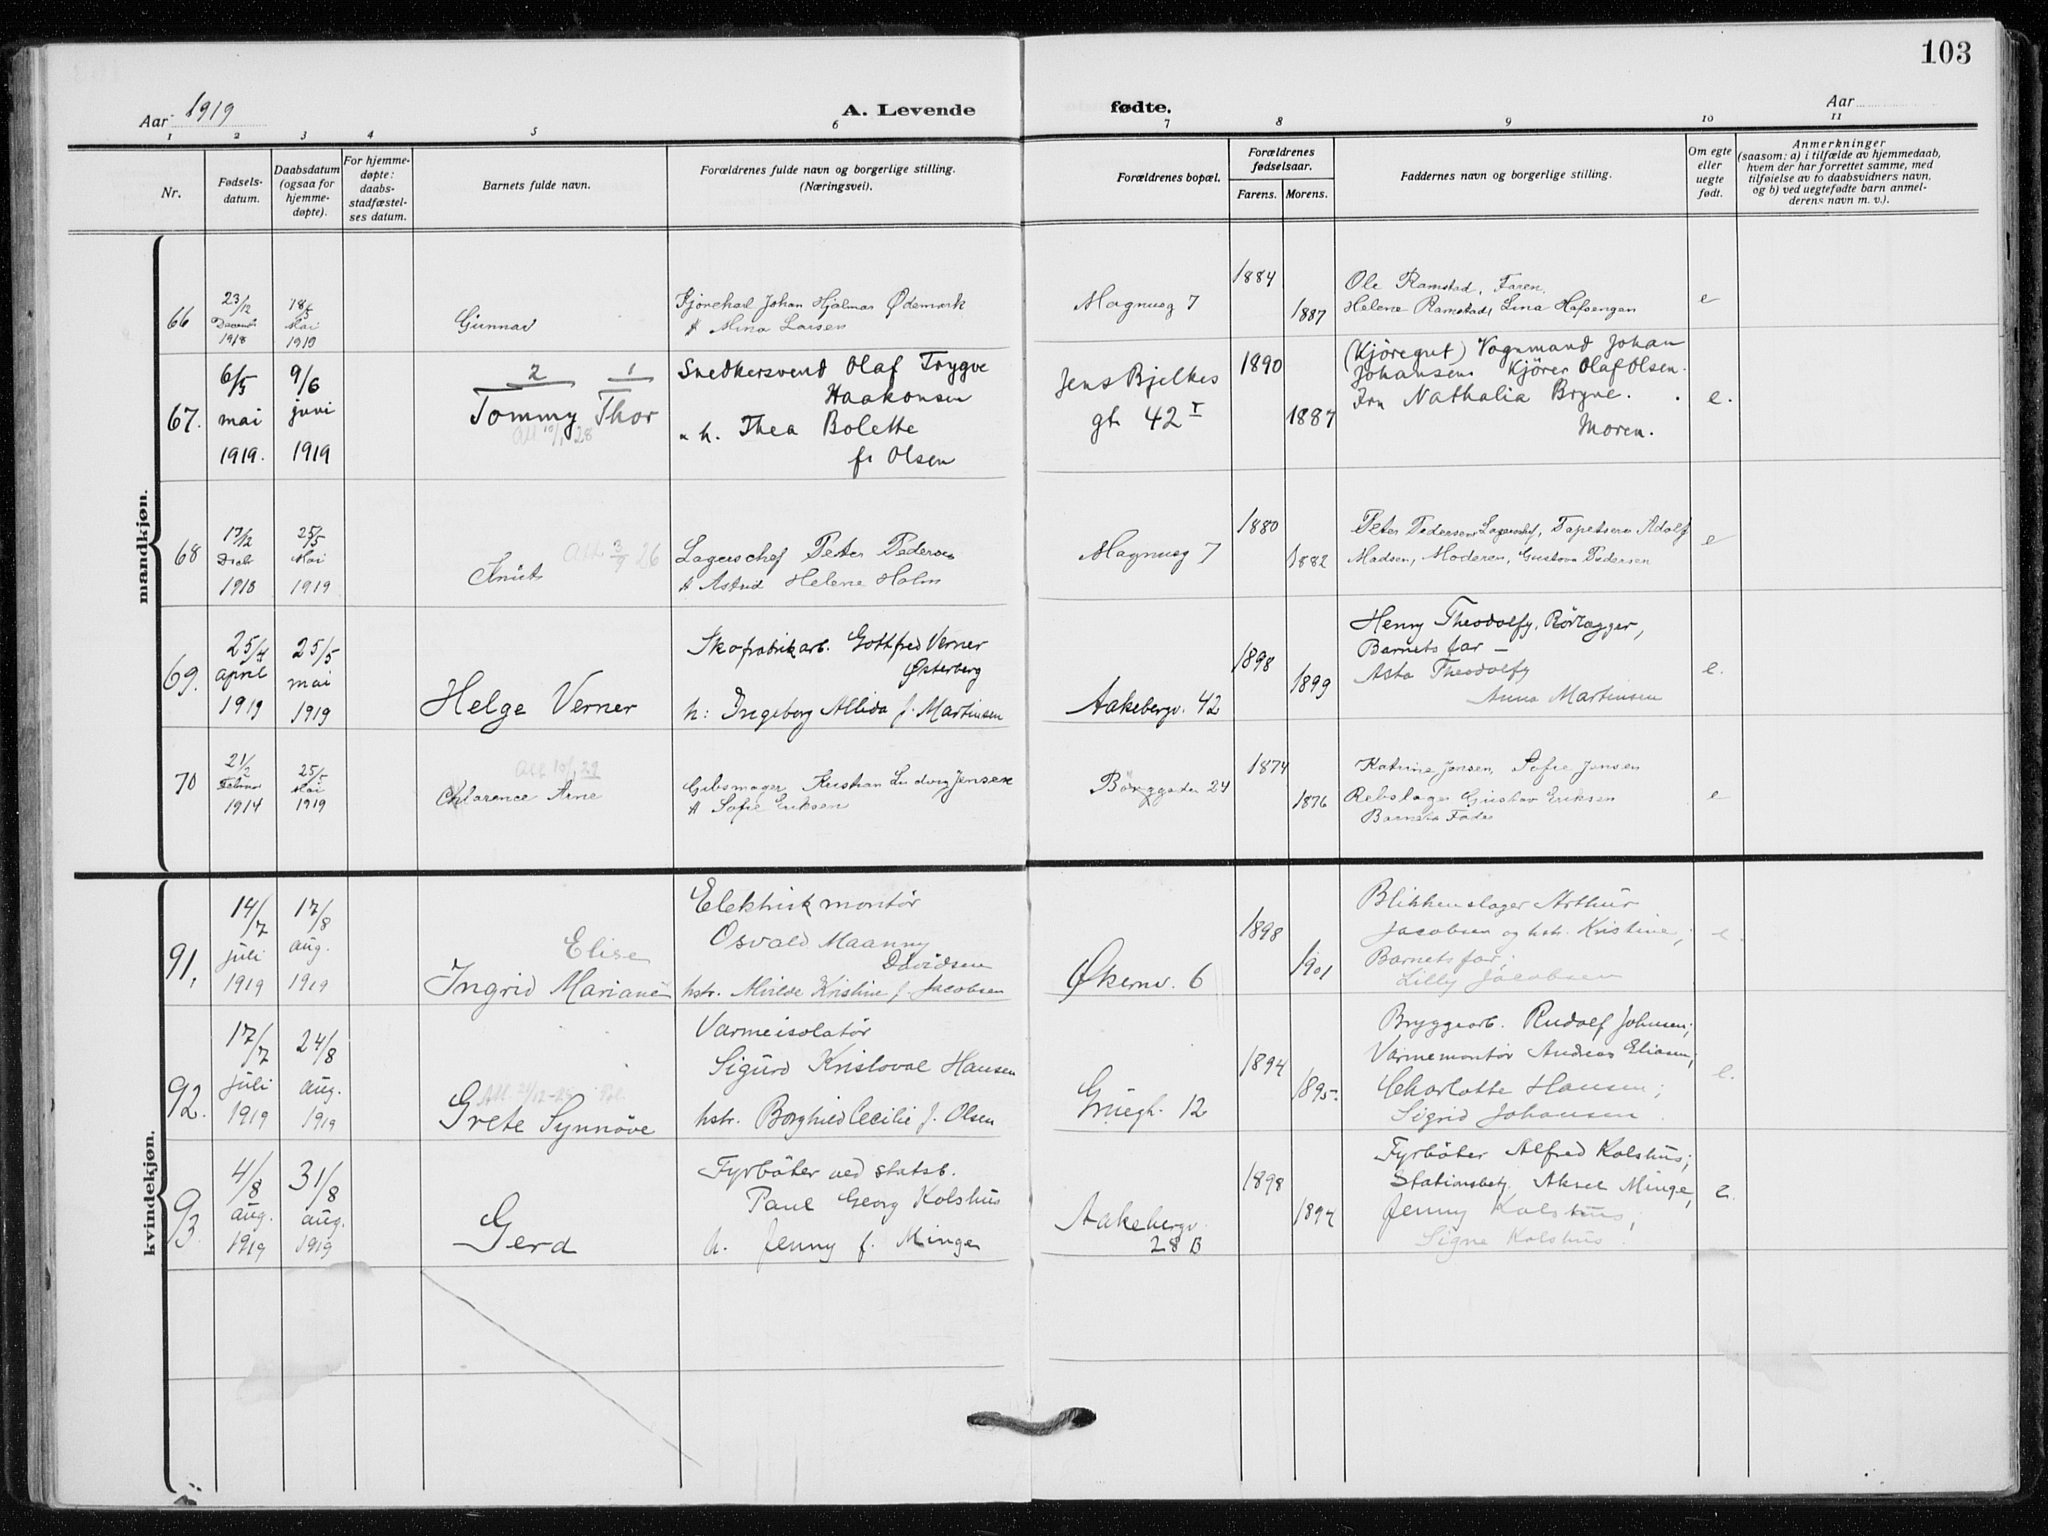 103
Aar 1919
A. Levende
fødte.
Aar
1 2 3 4 5 6 7 8 9 10 11
Nr.
Fødsels-
datum.
Daabsdatum
(ogsaa for
hjemme-
døpte).
For hjemme-
døpte:
daabs-
stadfæstel-
ses datum.
Barnets fulde navn.
Forældrenes fulde navn og borgerlige stilling.
(Næringsvei).
Forældrenes bopæl.
Forældrenes
fødselsaar.
Farens. Morens.
Faddernes navn og borgerlige stilling.
Om egte
eller
uegte
født.
Anmerkninger
(saasom: a) i tilfælde av hjemmedaab,
hvem der har forrettet samme, med
tilføielse av to daabsvidners navn,
og b) ved uegtefødte barn anmel-
derens navn m. v.).
mandkjøn.
66
23/12
1918
18/5
Mai
1919
Gunnar
Johan Hjalmar Ødemark
Mina Larsen
Magnusg 7
1884
1887
Ole Ramstad, Faren,
Helene Ramstad, Lina Hafsengen
e
67.
6/5
mai
1919.
9/6
juni
1919
2 1
Tommy Thor
Att 10/1 28
Snedkersvend Olaf Trygve
Haakonsen
h. Thea Bolette
f. Olsen
Jens Bjelkes
gt. 42 I
1890
1887
(Kjøregut) Vognmand Johan
Johansen Kjører Olaf Olsen.
Fru Nathalia Bryne.
Moren.
e.
68
13/12
1918
25/5
Mai
1919
Att 3/9 26
Knut
Lagerschef Peter Pedersen
Astrid Helene Holm
Magnusg 7
1880
1882
Peter Pedersen Lagerschef, Tapetserer Adolf
Madsen, Moderen, Gustava Pedersen
e
69.
25/4
april
1919
25/5
mai
1919
Helge Verner
Skofabrikarb. Gottfred Verner
Østerberg
h: Ingeborg Allida f. Martinsen
Aakebergv. 42
1898
1899
Henny Theodolfy, Rørlægger,
Barnets far –
Asta Theodolfy
Anna Martinsen
e.
70
21/2
Februar
1914
25/5
Mai
1919
Att 10/1 29
Clarence Arne
Gibsmager Kristian Ludvig Jensen
Sofie Eriksen
Borggaden 24
1874
1876
Katrine Jensen, Sofie Jensen
Rebslager Gustav Eriksen
Barnets Fader
e
kvindekjøn.
91.
14/7
juli
1919
17/8
aug.
1919
Elise
Ingrid Marianë
Elektrisk montør
Osvald Maanny
Davidsen
hstr. Milde Kristine f. Jacobsen
Økernv. 6
1898
1901
Blikkenslager Arthur
Jacobsen og hstr. Kristine;
Barnets far;
Lilly Jacobsen
e.
92.
17/7
juli
1919
24/8
aug.
1919
Grete Synnöve
Varmeisolatør
Sigurd Kristoval Hansen
hstr. Borghild Cecilie f. Olsen
Gruegt. 12
1894
1895.
Bryggearb. Rudolf Johnsen;
Varmemontør Andreas Eliasen;
Charlotte Hansen;
Sigrid Johansen
e.
93.
4/8
aug.
1919
31/8
aug.
1919
Gerd
Fyrbøter ved statsb.
Paul Georg Kolshus
h. Jenny f. Minge
Aakebergv.
28 B
1898
1894
Fyrbøter Alfred Kolshus;
Stationsbetj. Aksel Minge,
Jenny Kolshus;
Signe Kolshus.
e.